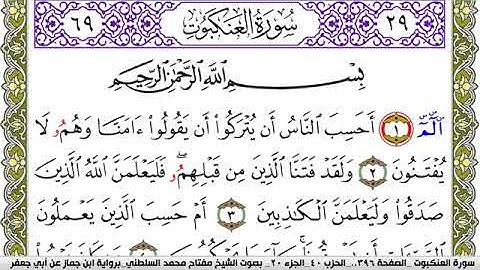 ٢٩ سُورَةُ العَنكَبُوتِ ٦٩
بِسْمِ اللَّهِ الرَّحْمَٰنِ الرَّحِيمِ
الٓمٓ ١ أَحَسِبَ النَّاسُ أَن يُتْرَكُوا أَن يَقُولُوا ءَامَنَّا وَهُمُۥ لَا
يُفْتَنُونَ ٢ وَلَقَدْ فَتَنَّا الَّذِينَ مِن قَبْلِهِمُۥ ۖ فَلَيَعْلَمَنَّ اللَّهُ الَّذِينَ
صَدَقُوا وَلَيَعْلَمَنَّ الْكَٰذِبِينَ ٣ أَمْ حَسِبَ الَّذِينَ يَعْمَلُونَ
سورة العنكبوت _ الصفحة ٣٩٦ _ الحزب ٤٠ _ الجزء ٢٠ _ بصوت الشيخ مفتاح محمد السلطني _ برواية ابن جماز عن أبي جعفر